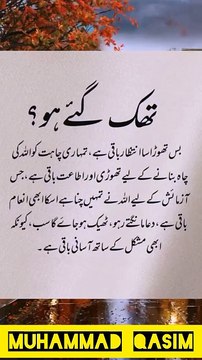 تھک گئے ہو؟
بس تھوڑا سا انتظار باقی ہے، تمہاری چاہت کو اللہ کی
چاہ بنانے کے لیے تھوڑی اور اطاعت باقی ہے، جس
آزمائش کے لیے اللہ نے تمہیں چنا ہے اسکا ابھی انعام
باقی ہے، دعا مانگتے رہو، ٹھیک ہو جائے گا سب، کیونکہ
ابھی مشکل کے ساتھ آسانی باقی ہے۔
MUHAMMAD QASIM